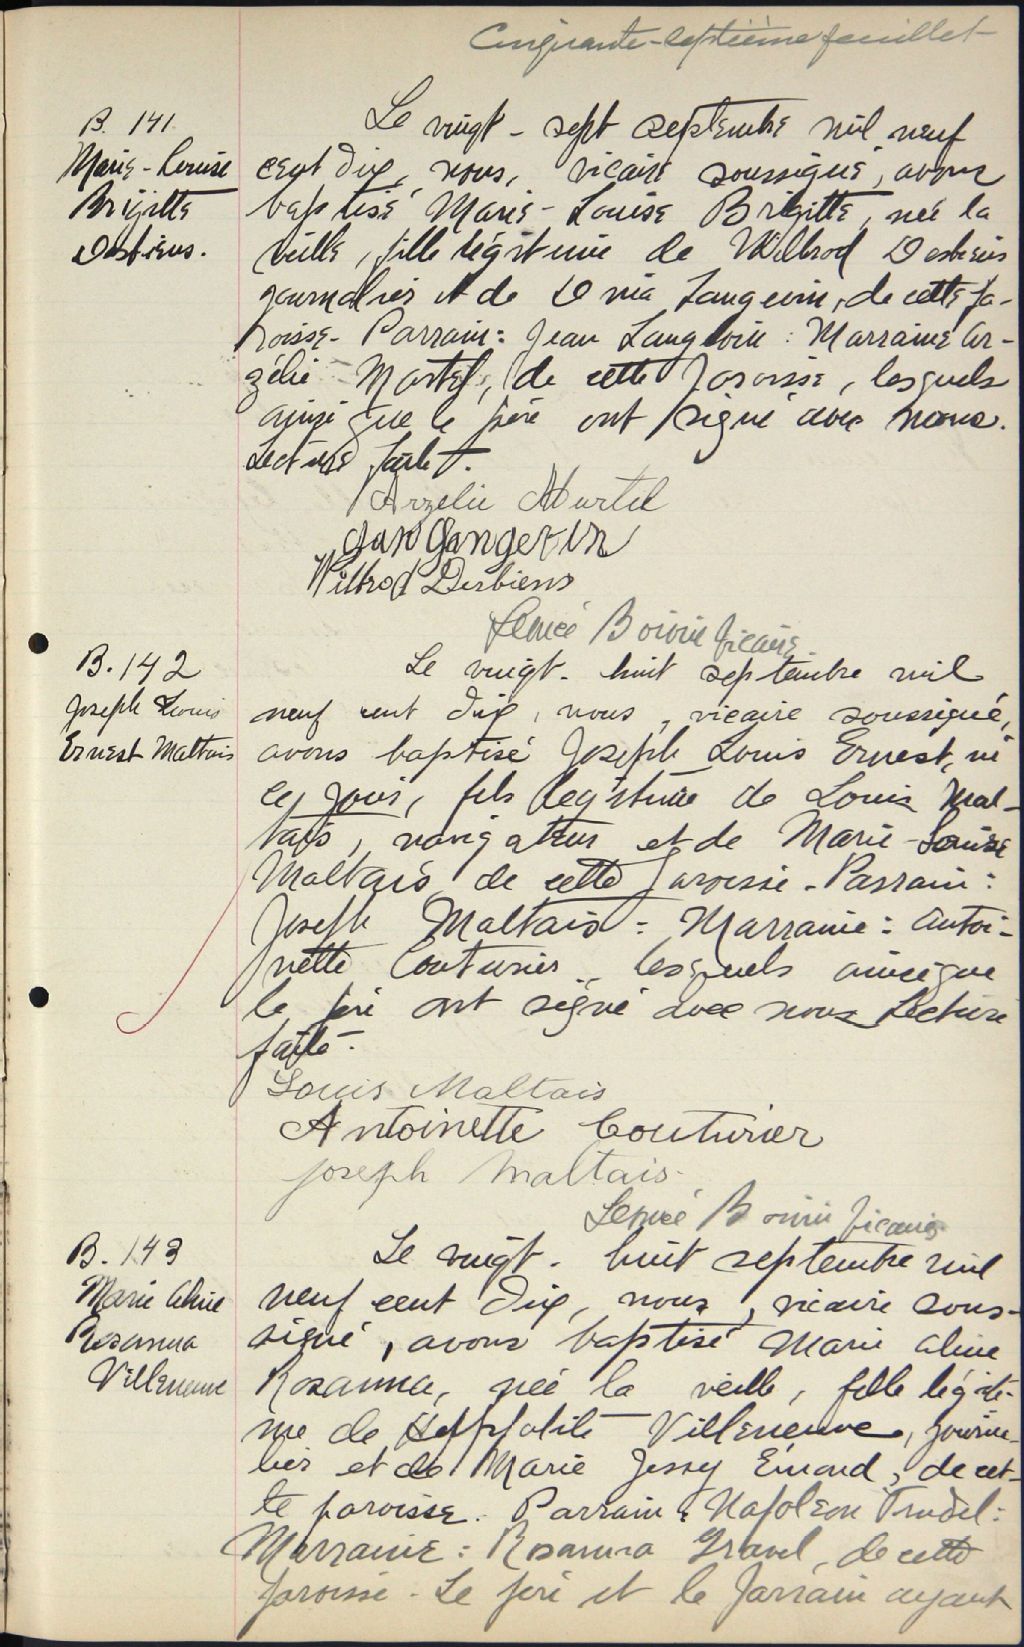 Cinquante-septième feuillet
B. 141
Marie-Louise
Brigitte
Desbiens.
Le vingt-sept septembre mil neuf
cent dix, nous, vicaire soussigné, avons
baptisé Marie-Louise Brigitte, née la
veille, fille légitime de Wilbrod Desbiens
journalier et de Onia Langevin, de cette pa-
roisse. Parrain: Jean Langevin: Marraine Ar-
zélie Martel, de cette paroisse, lesquels
ainsi que le père ont signé avec nous.
Lecture faite.
Arzelie Martel
Jean Langevin
Wilbrod Desbiens
Boivin vicaire
B. 142
Joseph Louis
Ernest Maltais
Le vingt-huit septembre mil
neuf cent dix, nous, vicaire soussigné,
avons baptisé Joseph Louis Ernest, né
ce jour, fils légitime de Louis Mal-
tais, navigateur et de Marie-Louise
Maltais de cette paroisse. Parrain:
Joseph Maltais: Marraine: Antoi-
nette Couturier lesquels ainsi que
le père ont signé avec nous Lecture
faite.
Louis Maltais
Antoinette Couturier
Joseph Maltais
Boivin vicaire
B. 143
Marie Aline
Rosanna
Villeneuve
Le vingt-huit septembre mil
neuf cent dix, nous, vicaire sous-
signé, avons baptisé Marie Aline
Rosanna, née la veille, fille légiti-
me de Hyppolite Villeneuve, journa-
lier et de Marie Jessey Émond, de cet-
te paroisse. Parrain: Napoléon Trudel:
Marraine: Rosanna Gravel, de cette
paroisse. Le père et le parrain ayant